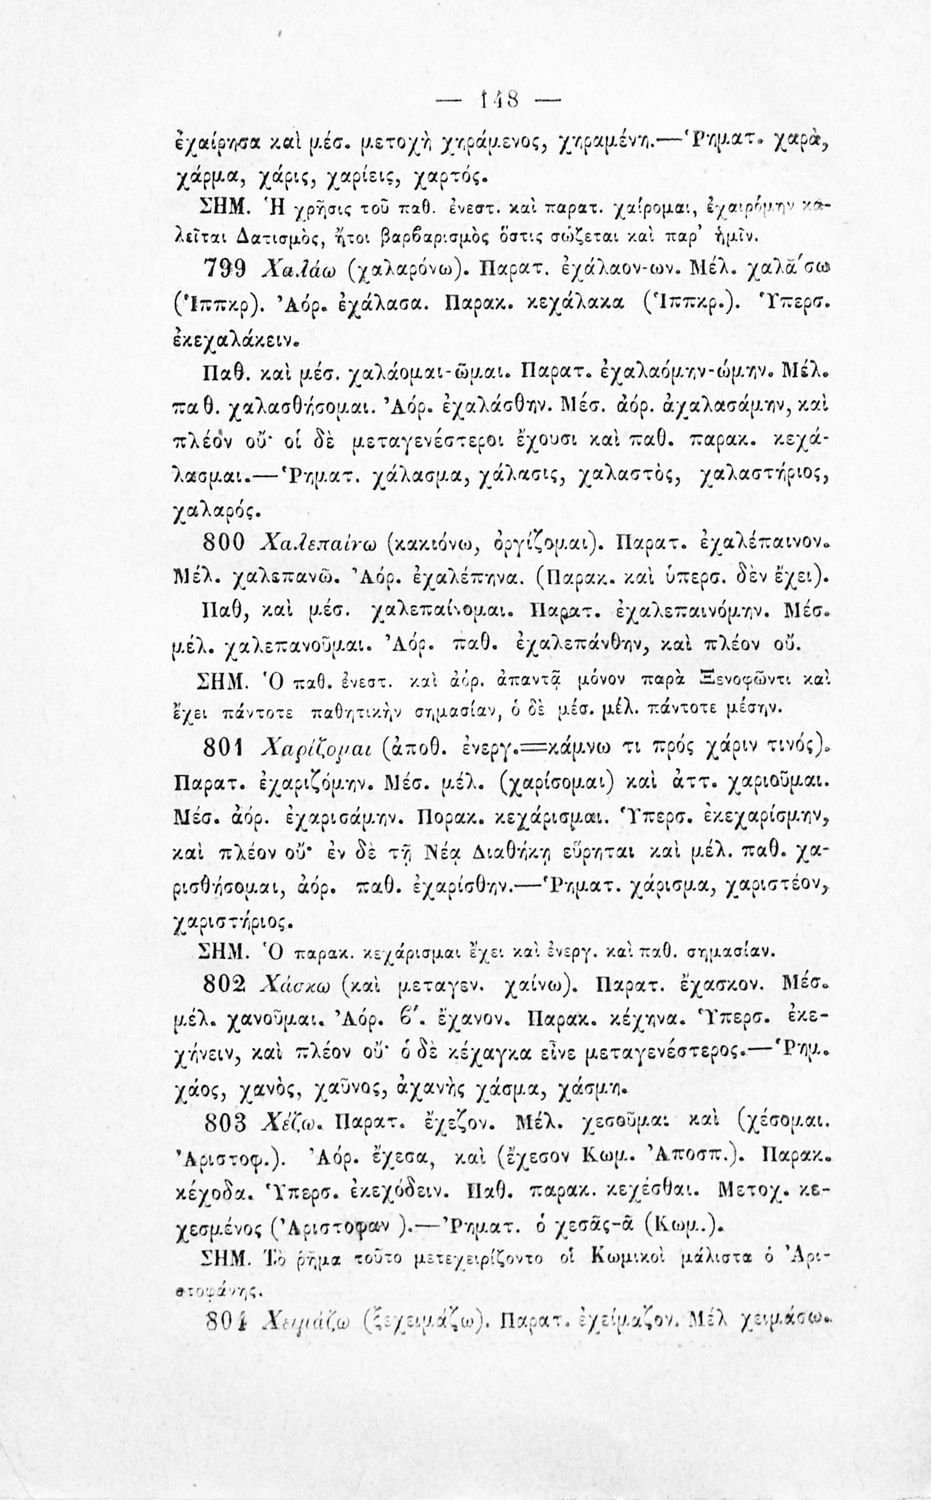 — 148 —
ἐχαίρησα καὶ μέσ. μετοχὴ χηράμενος, χηραμένη.—Ῥηματ. χαρὰ,
χάρμα, χάρις, χαρίεις, χαρτός.
ΣΗΜ. Ἡ χρῆσις τοῦ παθ. ἐνεστ. καὶ παρατ. χαίρομαι, ἐχαιρόμην κα-
λεῖται Δατισμὸς, ἤτοι βαρβαρισμὸς ὅστις σώζεται καὶ παρ’ ἡμῖν.
799 Χαλάω (χαλαρόνω). Παρατ. ἐχάλαον-ων. Μέλ. χαλᾰ́σω
(Ἱππκρ). Ἀόρ. ἐχάλασα. Παρακ. κεχάλακα (Ἱππκρ.). Ὑπερσ.
ἐκεχαλάκειν.
Παθ. καὶ μέσ. χαλάομαι-ῶμαι. Παρατ. ἐχαλαόμην-ώμην. Μέλ.
παθ. χαλασθήσομαι. Ἀόρ. ἐχαλάσθην. Μέσ. ἀόρ. ἀχαλασάμην, καὶ
πλέον οὔ· οἱ δὲ μεταγενέστεροι ἔχουσι καὶ παθ. παρακ. κεχά-
λασμαι.—Ῥηματ. χάλασμα, χάλασις, χαλαστὸς, χαλαστήριος,
χαλαρός.
800 Χαλεπαίνω (κακιόνω, ὀργίζομαι). Παρατ. ἐχαλέπαινον.
Μέλ. χαλεπανῶ. Ἀόρ. ἐχαλέπηνα. (Παρακ. καὶ ὑπερσ. δὲν ἔχει).
Παθ, καὶ μέσ. χαλεπαίνομαι. Παρατ. ἐχαλεπαινόμην. Μέσ.
μέλ. χαλεπανοῦμαι. Ἀόρ. παθ. ἐχαλεπάνθην, καὶ πλέον οὔ.
ΣΗΜ. Ὁ παθ. ἐνεστ. καὶ ἀόρ. ἀπαντᾷ μόνον παρὰ Ξενοφῶντι καὶ
ἔχει πάντοτε παθητικὴν σημασίαν, ὁ δὲ μέσ. μέλ. πάντοτε μέσην.
801 Χαρίζομαι (ἀποθ. ἐνεργ.=κάμνω τι πρός χάριν τινός).
Παρατ. ἐχαριζόμην. Μέσ. μέλ. (χαρίσομαι) καὶ ἀττ. χαριοῦμαι.
Μέσ. ἀόρ. ἐχαρισάμην. Πορακ. κεχάρισμαι. Ὑπερσ. ἐκεχαρίσμην,
καὶ πλέον οὔ· ἐν δὲ τῇ Νέᾳ Διαθήκῃ εὕρηται καὶ μέλ. παθ. χα-
ρισθήσομαι, ἀόρ. παθ. ἐχαρίσθην.—Ῥηματ. χάρισμα, χαριστέον,
χαριστήριος.
ΣΗΜ. Ὁ παρακ. κεχάρισμαι ἔχει καὶ ἐνεργ. καὶ παθ. σημασίαν.
802 Χάσκω (καὶ μεταγεν. χαίνω). Παρατ. ἔχασκον. Μέσ.
μέλ. χανοῦμαι. Ἀόρ. β΄. ἔχανον. Παρακ. κέχηνα. Ὑπερσ. ἐκε-
χήνειν, καὶ πλέον οὔ· ὁ δὲ κέχαγκα εἶνε μεταγενέστερος.—Ῥημ.
χάος, χανὸς, χαῦνος, ἀχανὴς χάσμα, χάσμη.
803 Χέζω. Παρατ. ἔχεζον. Μέλ. χεσοῦμαι καὶ (χέσομαι.
Ἀριστοφ.). Ἀόρ. ἔχεσα, καὶ (ἔχεσον Κωμ. Ἀποσπ.). Παρακ.
κέχοδα. Ὑπερσ. ἐκεχόδειν. Παθ. παρακ. κεχέσθαι. Μετοχ. κε-
χεσμένος (Ἀριστοφαν ).—Ῥηματ. ὁ χεσᾶς-ᾶ (Κωμ.).
ΣΗΜ. Τὸ ῥῆμα τοῦτο μετεχειρίζοντο οἱ Κωμικοὶ μάλιστα ὁ Ἀρι-
στοφάνης.
804 Χειμάζω (ξεχειμάζω). Παρατ. ἐχείμαζον. Μέλ χειμάσω.